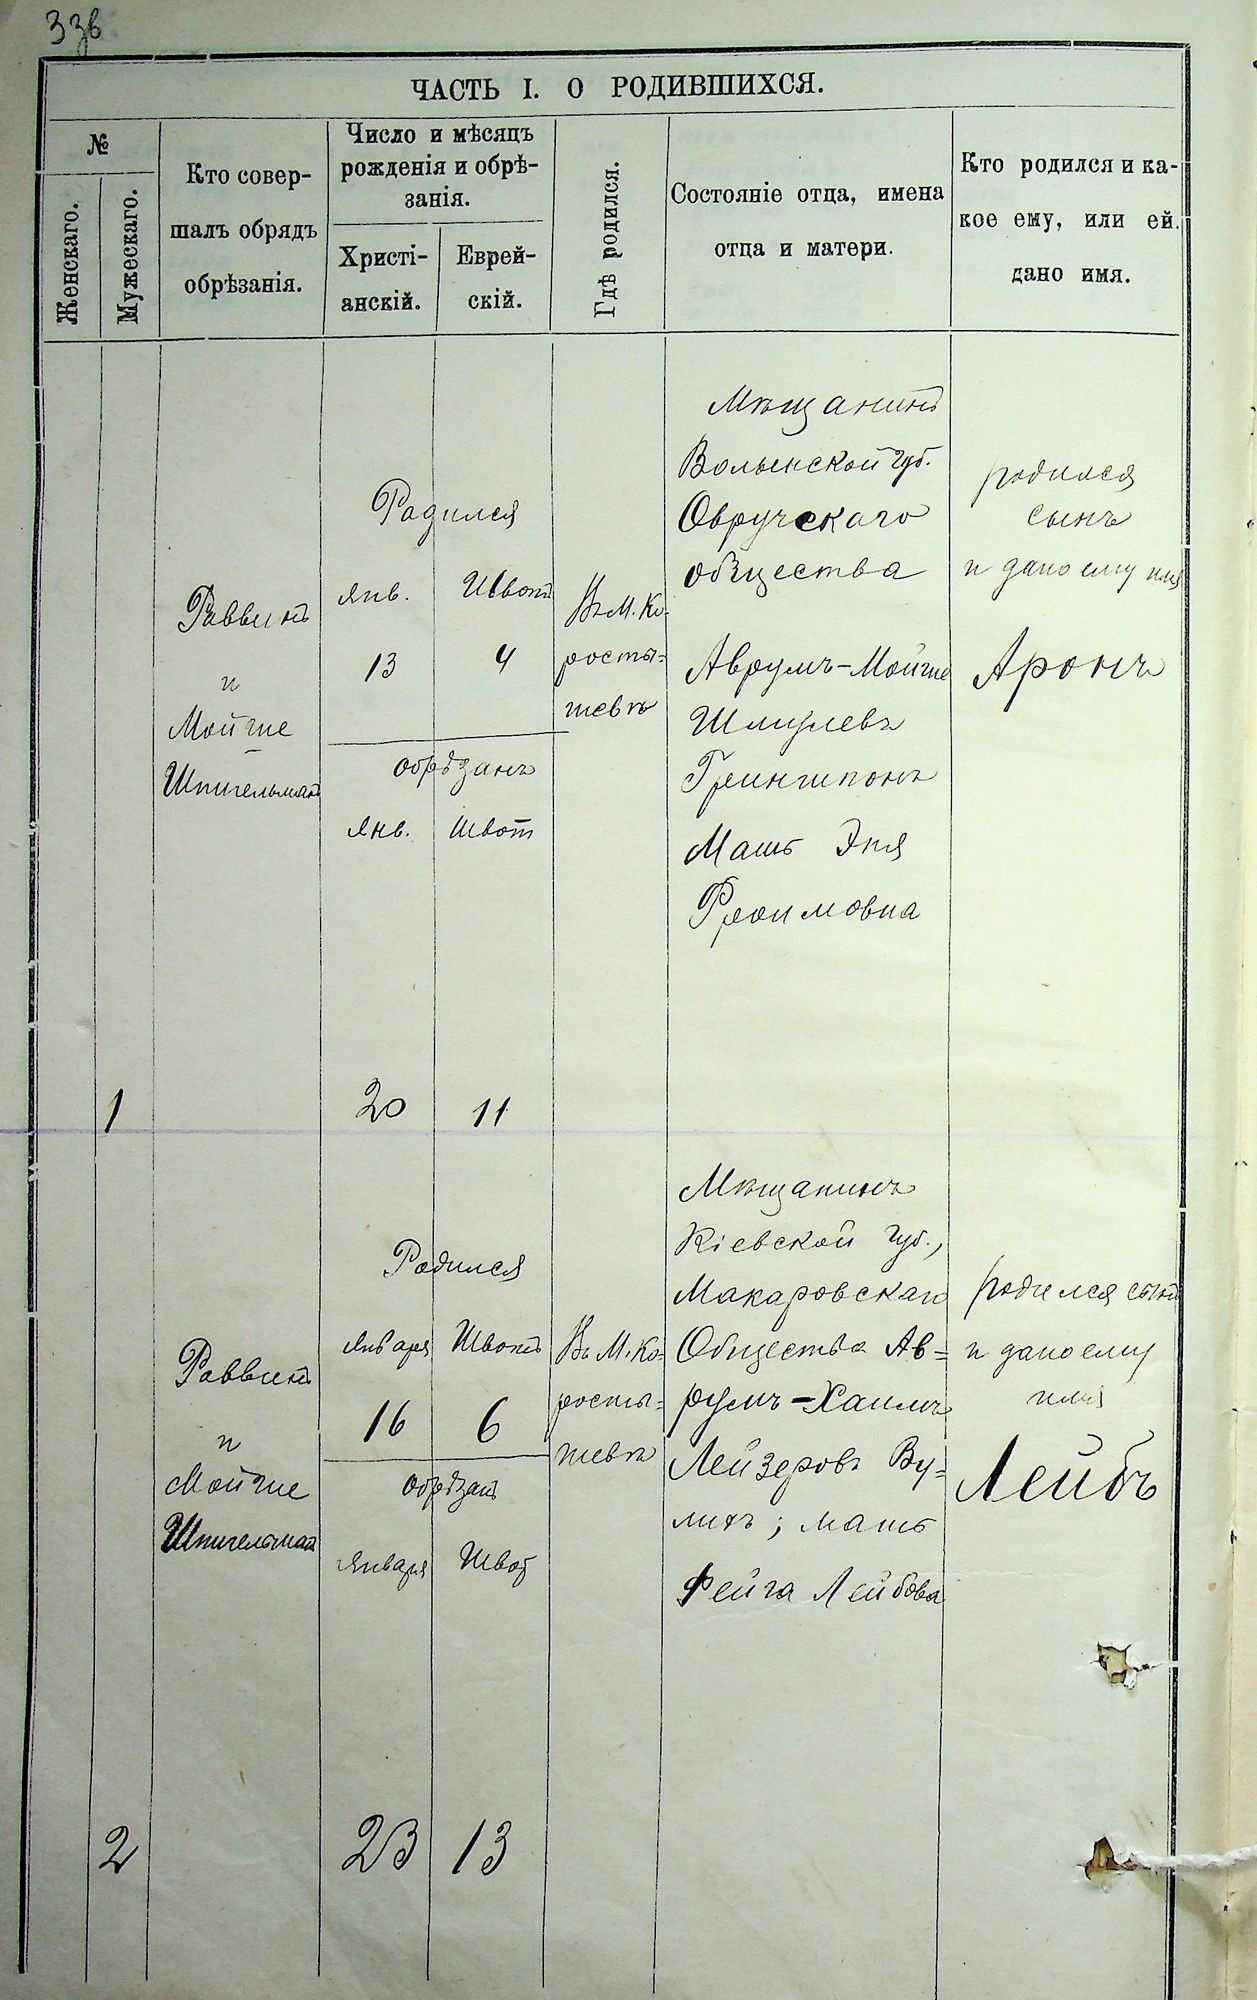 33в
ЧАСТЬ I. О РОДИВШИХСЯ.
№
Женскаго.
Мужескаго.
Кто совер-
шалъ обрядъ
обрѣзанія.
Число и мѣсяцъ
рожденія и обрѣ-
занія.
Христі-
анскій.
Еврей-
скій.
Гдѣ родился.
Состояніе отца, имена
отца и матери.
Кто родился и ка-
кое ему, или ей.
дано имя.
1
Раввинъ
и
Мойше
Шпигельманъ
Родился
Янв.
13
Швотъ
4
обрѣзанъ
Янв.
20
Швот
11
Въ М. Ко-
росты=
шевѣ
Мѣщанинъ
Волынской губ.
Овручскаго
общества
Аврумъ-Мойше
Шмулевъ
Грингшпонъ
Мать Эня
Фроимовна
родился
сынъ
и дано ему имя
Аронъ
2
Раввинъ
и
Мойше
Шпигельман
Родился
Января
16
Швотъ
6
обрѣзанъ
Января
23
Швот
13
Въ М. Ко=
росты=
шевѣ
Мѣщанинъ
Кіевской губ.,
Макаровскаго
Общества Ав=
румъ-Хаимъ
Лейзеровъ Ву=
лихъ; мать
Фейга Лейбова
родился сынъ
и дано ему
имя
Лейбъ